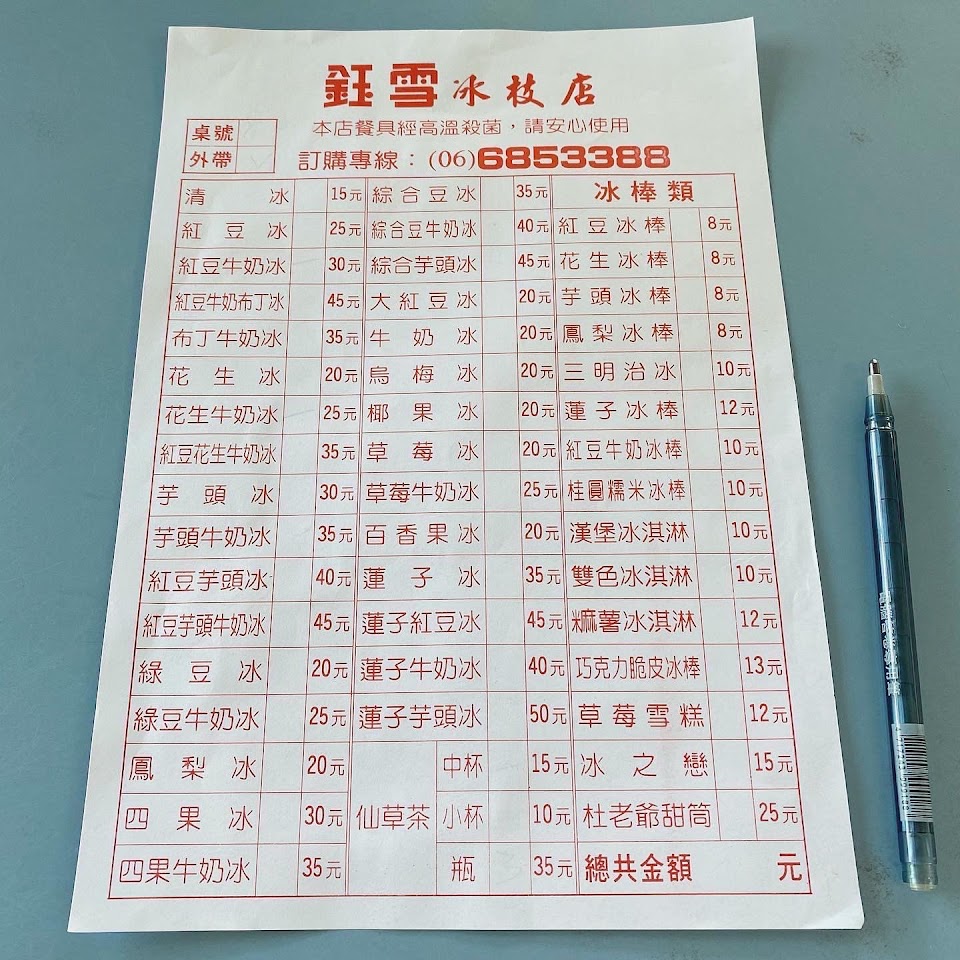 鈺雪冰枝店
本店餐具經高溫殺菌，請安心使用
桌號
外帶
訂購專線：(06)6853388
清冰 15元 綜合豆冰 35元 冰棒類
紅豆冰 25元 綜合豆牛奶冰 40元 紅豆冰棒 8元
紅豆牛奶冰 30元 綜合芋頭冰 45元 花生冰棒 8元
紅豆牛奶布丁冰 45元 大紅豆冰 20元 芋頭冰棒 8元
布丁牛奶冰 35元 牛奶冰 20元 鳳梨冰棒 8元
花生冰 20元 烏梅冰 20元 三明治冰 10元
花生牛奶冰 25元 椰果冰 20元 蓮子冰棒 12元
紅豆花生牛奶冰 35元 草莓冰 20元 紅豆牛奶冰棒 10元
芋頭冰 30元 草莓牛奶冰 25元 桂圓糯米冰棒 10元
芋頭牛奶冰 35元 百香果冰 20元 漢堡冰淇淋 10元
紅豆芋頭冰 40元 蓮子冰 35元 雙色冰淇淋 10元
紅豆芋頭牛奶冰 45元 蓮子紅豆冰 45元 麻薯冰淇淋 12元
綠豆冰 20元 蓮子牛奶冰 40元 巧克力脆皮冰棒 13元
綠豆牛奶冰 25元 蓮子芋頭冰 50元 草莓雪糕 12元
鳳梨冰 20元 仙草茶 中杯 15元 冰之戀 15元
四果冰 30元 小杯 10元 杜老爺甜筒 25元
四果牛奶冰 35元 瓶 35元 總共金額 元